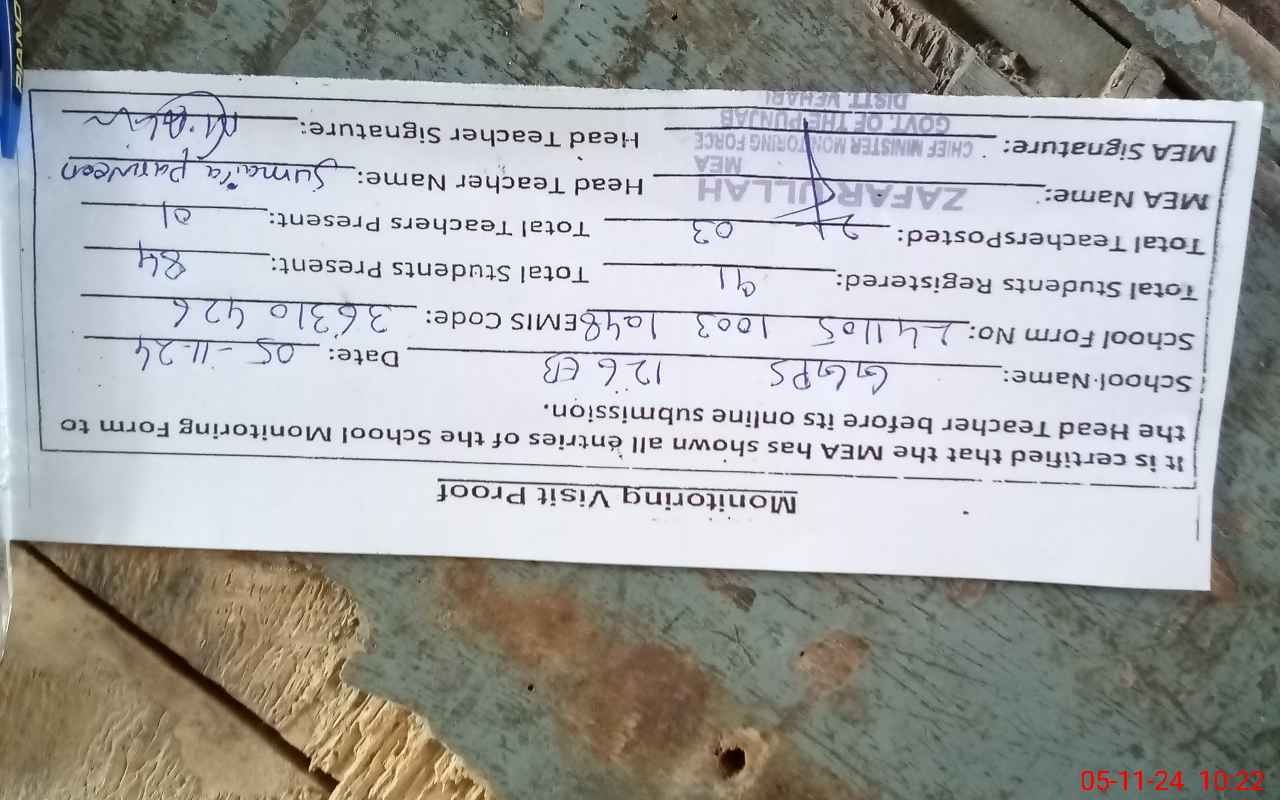 Monitoring Visit Proof
It is certified that the MEA has shown all entries of the School Monitoring Form to
the Head Teacher before its online submission.
School Name: GGPS 126 EB Date: 05-11-24
School Form No: 241105 1003 1048 EMIS Code: 36310426
Total Students Registered: 91 Total Students Present: 84
Total Teachers Posted: 03 Total Teachers Present: 01
MEA Name: ZAFAR ULLAH Head Teacher Name: Sumaira parveen
MEA
CHIEF MINISTER MONITORING FORCE
MEA Signature: Head Teacher Signature:
GOVT. OF THE PUNJAB
DISTT. VEHARI
05-11-24 10:22